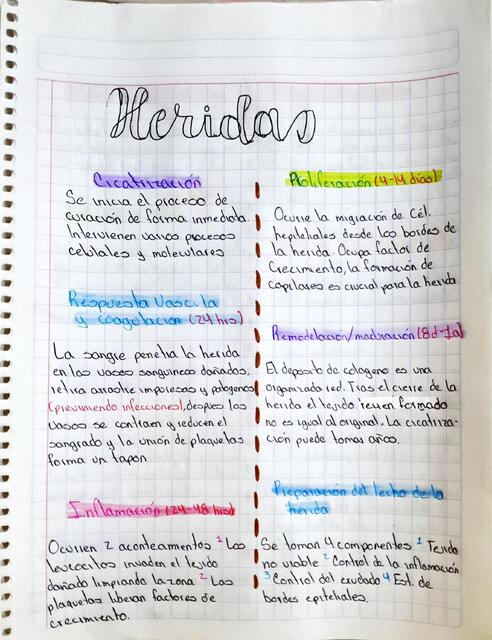 Heridas
Cicatrización
Se inicia el proceso de
curación de forma inmediata.
Intervienen varios procesos
celulales y moleculares
Respuesta Vascula
y coagulación (24 hrs)
La sangre penetra la herida
en los vasos sanguineos dañados,
retira arrastre impurezas y patogenos
(previniendo infecciones), despues los
vasos se contraen y reducen el
sangrado y la unión de plaquetas
forma un tapon
Inflamación (24-48 hrs)
Ocurren 2 acontecamentos 1 Los
leucocitos invaden el tejido
dañado limpiando la zona 2 Las
plaquetas liberan factores de
crecimiento.
Proliferación (4-14 días)
Ocurre la migración de Cél.
hepiteliales desde los bordes de
la herida. Ocupa factor de
Crecimiento, la formación de
capilares es crucial para la herida
Remodelación/maduración (8d-1a)
El deposito de colageno es una
organizada red. Tras el cierre de la
herida el tejido reien formado
no es igual al original. La cicatriza-
ción puede tomar años.
Preparación del lecho de la
herida
Se toman 4 componentes 1 Tejido
no viable 2 Control de la inflamación
3 Control del exudado 4 Est. de
bordes epiteliales.